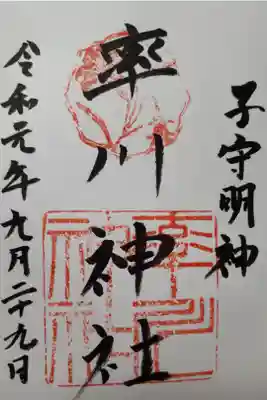 子守明神
率川神社
令和元年九月二十九日
率川神社